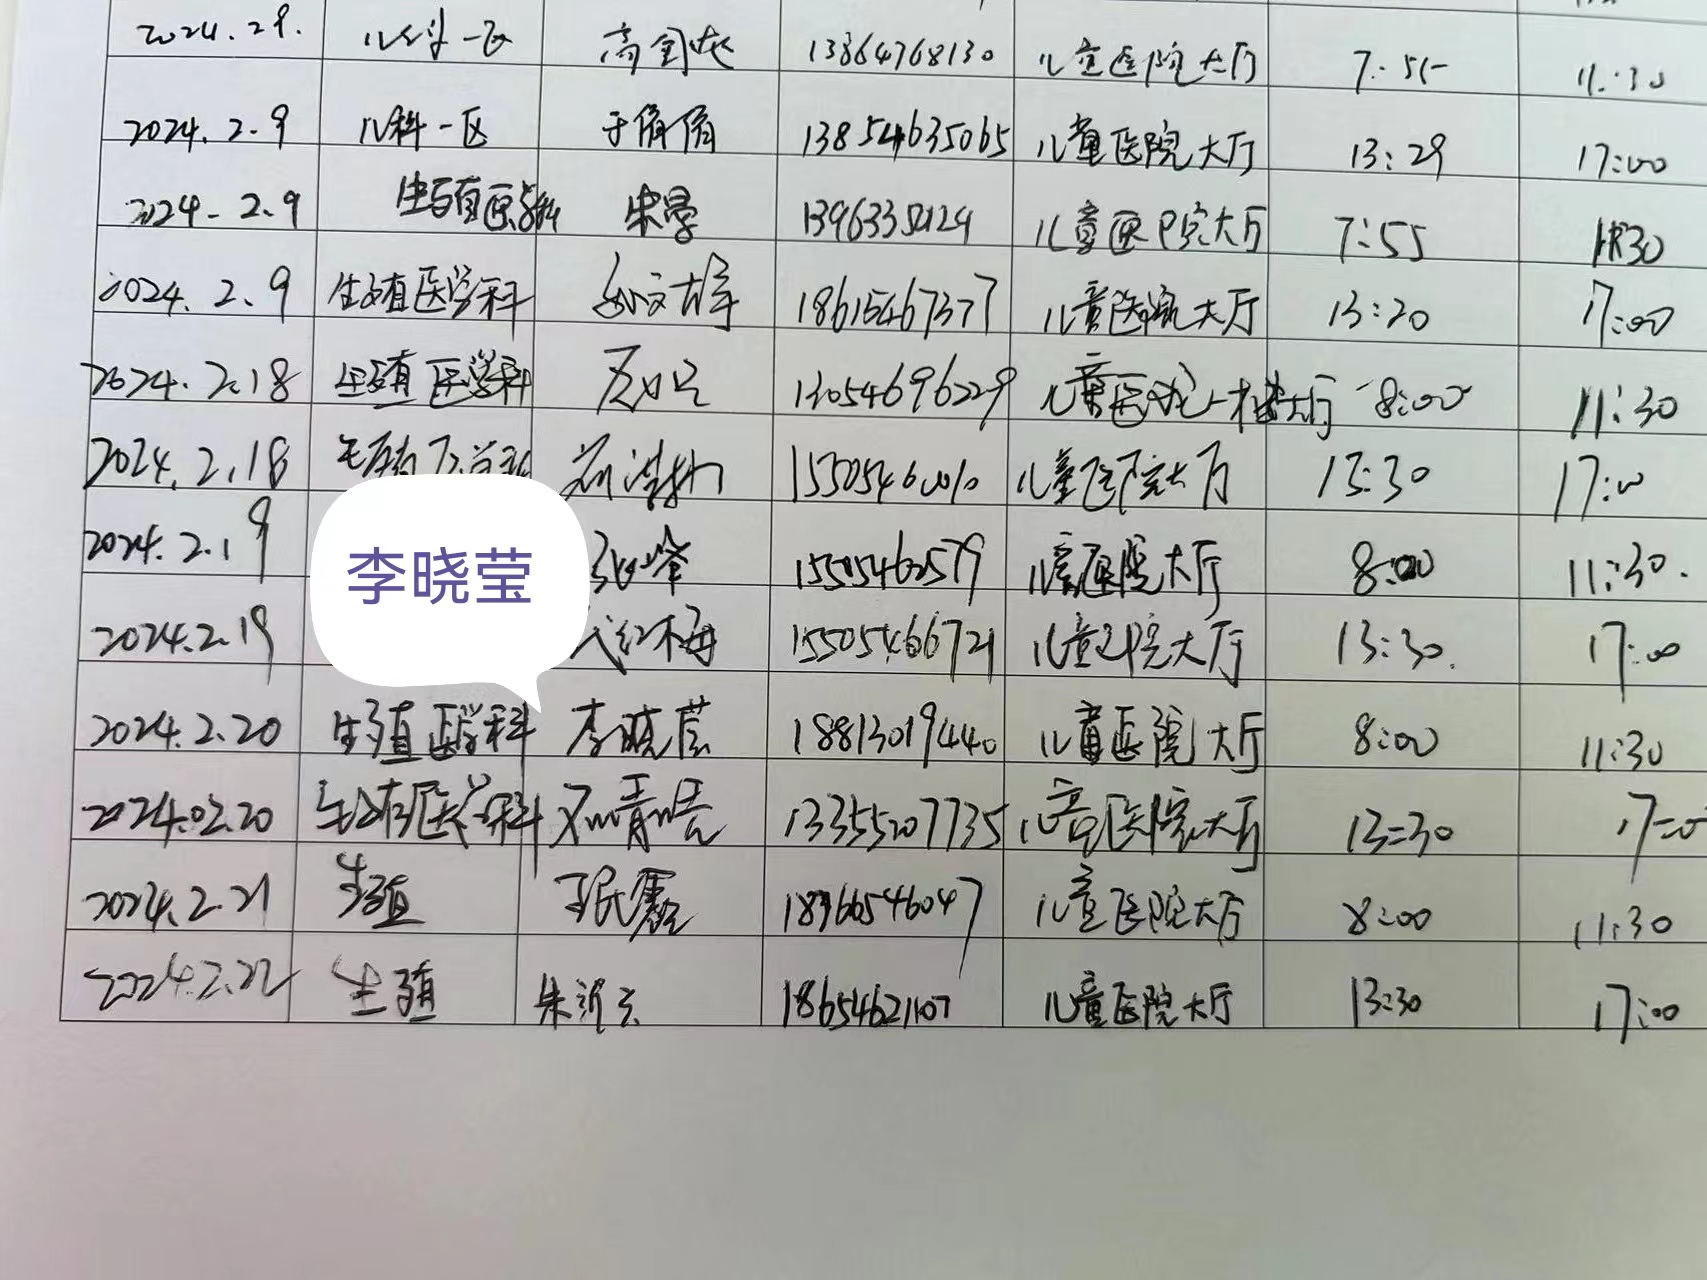 2024.2.9. 儿科一区 高 13864768130 儿童医院大厅 7:55 11:30
2024.2.9 儿科一区 于倩倩 13854635065 儿童医院大厅 13:29 17:00
2024-2.9 生殖医学科 宋 儿童医院大厅 7:55 11:30
2024.2.9 生殖医学科 18615467377 儿童医院大厅 13:20 17:00
2024.2.18 生殖医学科 13054696229 儿童医院一楼大厅 8:00 11:30
2024.2.18 生殖医学科 儿童医院大厅 13:30 17:00
2024.2.19 峰 15505462579 儿童医院大厅 8:00 11:30.
李晓莹
2024.2.19 红梅 15505466721 儿童医院大厅 13:30. 17:00
2024.2.20 生殖医学科 李晓莹 18813019440 儿童医院大厅 8:00 11:30
2024.02.20 生殖医学科 邓青 13355207735 儿童医院大厅 13:30 17:00
2024.2.21 生殖 王民 18966546047 儿童医院大厅 8:00 11:30
2024.2.22 生殖 朱 18654621107 儿童医院大厅 13:30 17:00